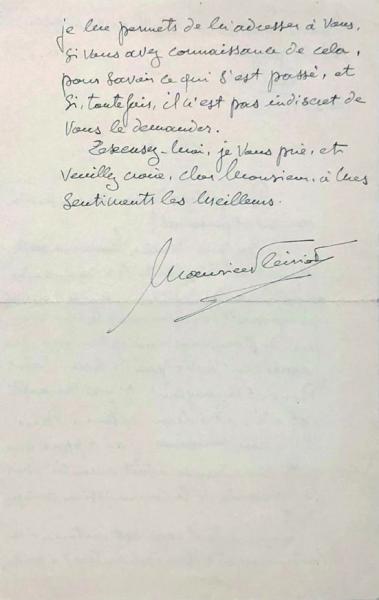 je me permets de m'adresser à Vous,
si Vous avez connaissance de cela,
pour savoir ce qui s'est passé, et
si, toutefois, il n'est pas indiscret de
Vous le demander.
Excusez-moi, je Vous prie, et
Veuillez croire, cher Monsieur, à mes
sentiments les meilleurs.
Maurice